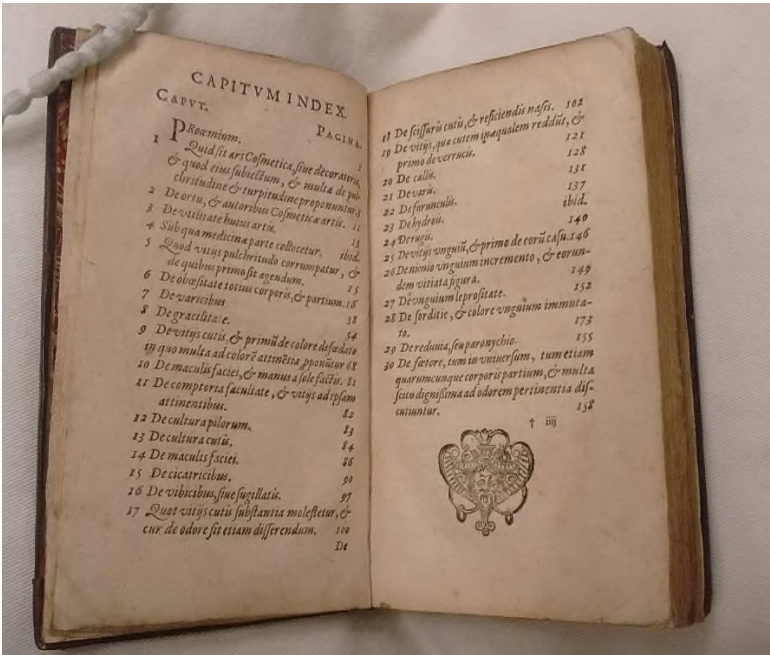 CAPITVM INDEX.
CAPVT. PAGINA.
PRoœmium. 1
1 Quid sit ars Cosmetica, siue decoratoria,
& quod eius subiectum, & multa de pul-
chritudine & turpitudine proponuntur.
2 De ortu, & autoribus Cosmeticæ artis. 11
3 De vtilitate huius artis. 13
4 Sub qua medicinæ parte collocetur. ibid.
5 Quod vitijs pulchritudo corrumpatur, &
de quibus primo sit agendum. 15
6 De obœsitate totius corporis, & partium. 16
7 De varicibus 38
8 De gracilitate. 54
9 De vitijs cutis, & primũ de colore defœdato
in quo multa ad colorẽ attinẽtia ꝓponũtur 68
10 De maculis faciei, & manus a sole factis. 81
11 De comptoria facultate, & vitijs ad ipsam
attinentibus. 82
12 De cultura pilorum. 83
13 De cultura cutis. 84
14 De maculis faciei. 86
15 De cicatricibus. 90
16 De vibicibus, siue sugillatis. 97
17 Quot vitijs cutis substantia molestetur, &
cur de odore sit etiam disserendum. 100
De
18 De scissuris cutis, & reficiendis nasis. 102
19 De vitijs, quæ cutem inæqualem reddũt, &
primo de verrucis. 121
20 De callis. 128
21 De varis. 131
22 De furunculis. 137
23 De hydrois. ibid.
24 De rugis. 140
25 De vitijs vnguiũ, & primo de eorũ casu. 146
26 De nimio vnguium incremento, & eorun-
dem vitiata figura. 149
27 De vnguium leprositate. 152
28 De sorditie, & colore vnguium immuta-
to. 173
29 De reduuia, seu paronychio. 155
30 De fœtore, tum in vniuersum, tum etiam
quarumcunque corporis partium, & multa
scitu dignissima ad odorem pertinentia dis-
cutiuntur. 158
† iiij